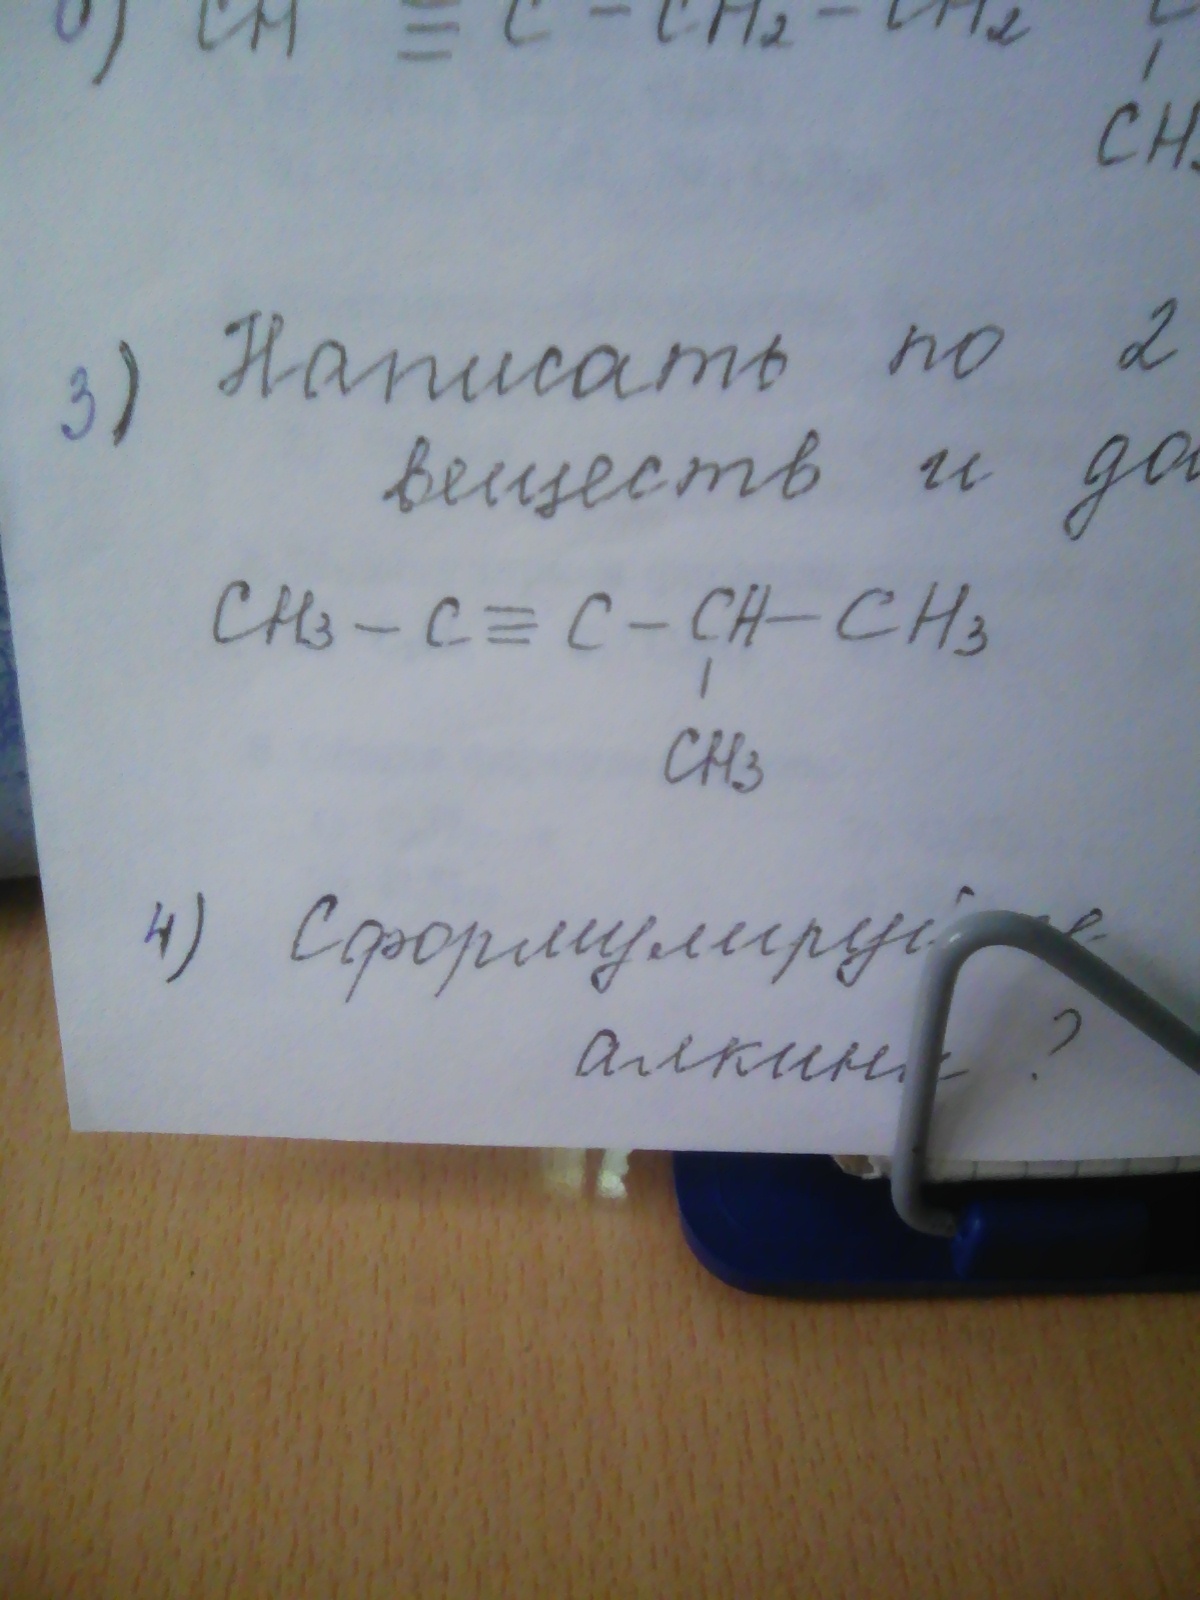 б) CH ≡ C - CH2 - CH2 C
CH3
3) Написать по 2
веществ и да
CH3 - C ≡ C - CH - CH3
CH3
4) Сформулируйте
алкины ?